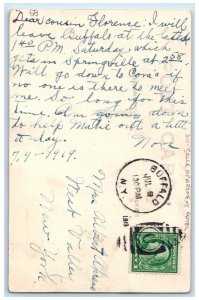 68
Dear cousin Florence: I will
leave Buffalo at the
1:40 P.M. Saturday, which
gets in Springville at 2:58.
Will go down to Cora's if
no one is there to meet
me. So long for this
time. Let'm going down
to help Mattie out a little
it-day.
7-9-1919.
Mrs Albert
West Valley
New York
BUFFALO
N.Y.
JUL 9
130 PM